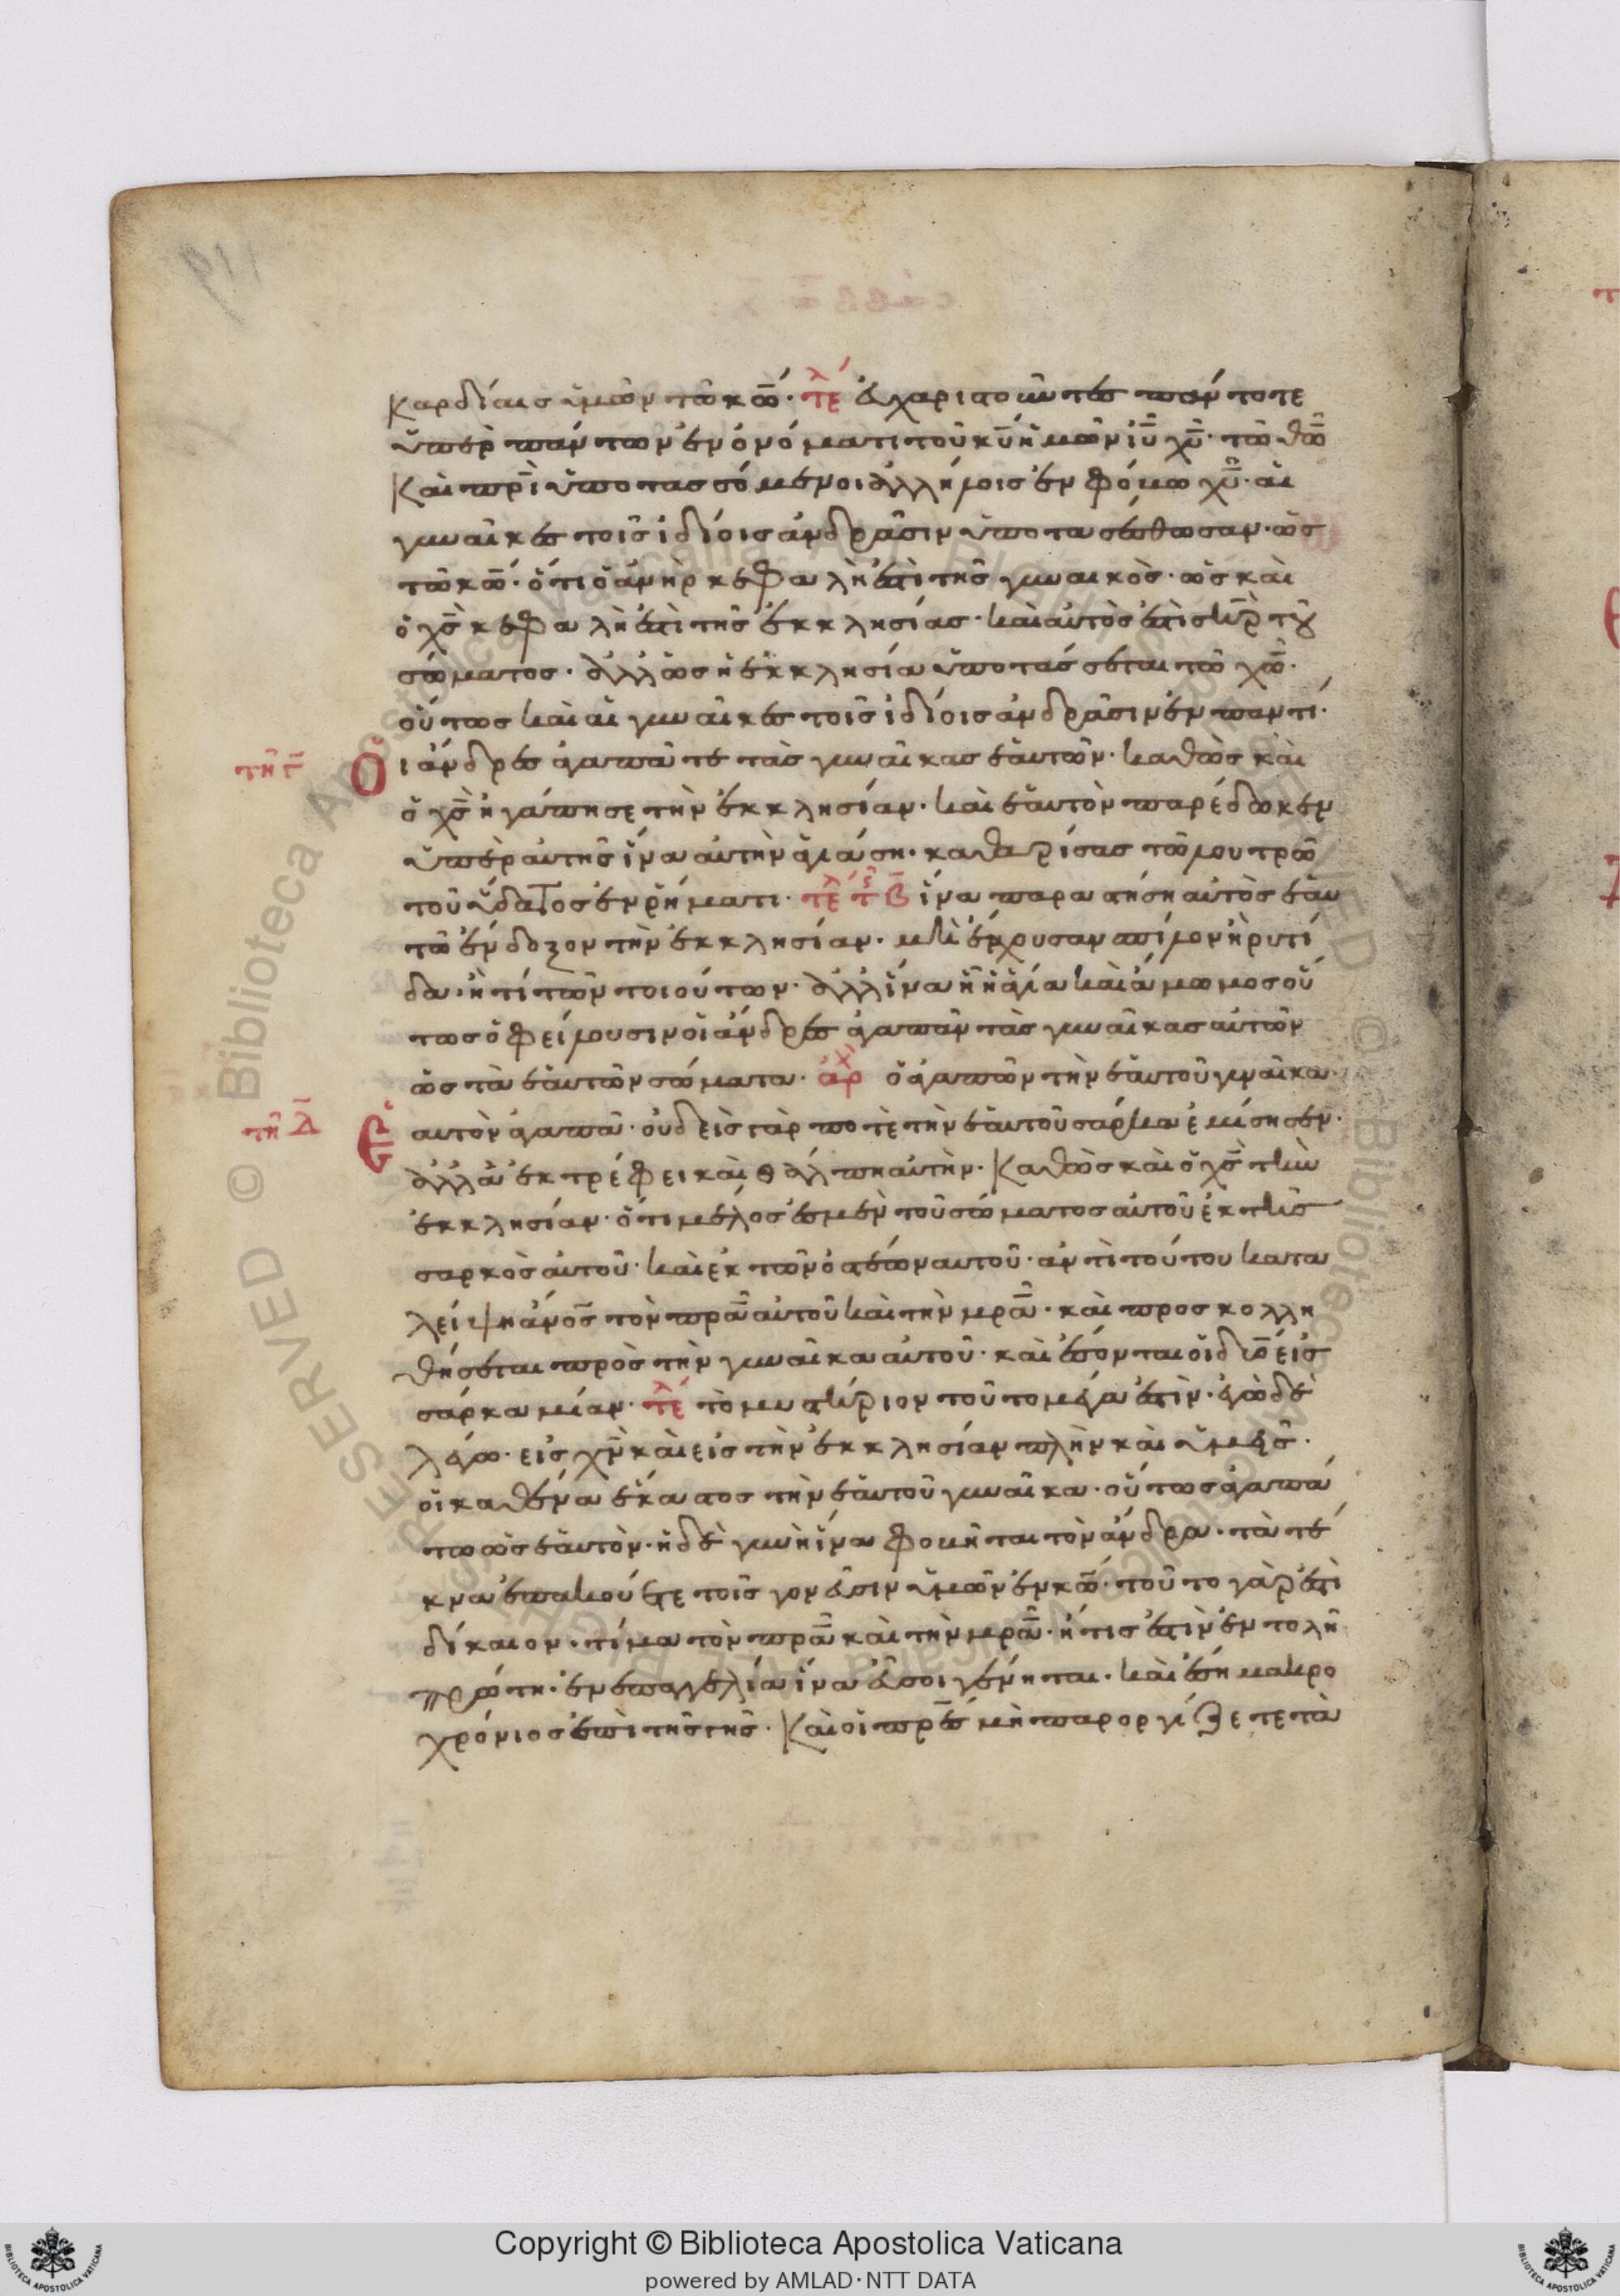 καρδίαις ὑμῶν τῶ κω̅· τε^λ εὐχαριστοῦντες πάντοτε
ὑπὲρ πάντων ἐν ὀνόματι τοῦ κυ̅ ἡμῶν ιυ̅ χυ̅· τῶ θω̅
καὶ πρι̅ ὑποτασσόμενοι ἀλλήλοις ἐν φόβω χυ̅· αἱ
γυναῖκες τοῖς ἰδίοις ἀνδράσιν ὑποτασέσθωσαν· ὡς
τῶ κω̅· ὅτι ὁ ἀνὴρ κεφαλή ἐστι τῆς γυναικὸς· ὡς καὶ
ὁ χς̅ κεφαλή ἐστι τῆς ἐκκλησίας· καὶ αὐτὸς ἐστὶ σηρ̅ τοῦ
σώματος· ἀλλ' ὡς ἡ ἐκκλησία ὑποτάσσεται τῶ χω̅·
οὕτως καὶ αἱ γυναῖκες τοῖς ἰδίοις ἀνδράσιν ἐν παντί·
τῆ γ̅ Οἱ ἄνδρες ἀγαπᾶτε τὰς γυναῖκας ἑαυτῶν· καθὼς καὶ
ὁ χς̅ ἠγάπησε τὴν ἐκκλησίαν· καὶ ἑαυτὸν παρέδωκεν
ὑπὲρ αὐτῆς ἵνα αὐτὴν ἁγιάση· καθαρίσας τῶ λουτρῶ
τοῦ ὕδατος ἐν ῥήματι· τε^λ τ^ς β̅ ἵνα παραστήση αὐτὸς ἑαυ
τῶ ἔνδοξον τὴν ἐκκλησίαν· μὴ ἔχουσαν σπίλον ἢ ρυτί
δα· ἤ τι τῶν τοιούτων· ἀλλ' ἵνα ἦ ἁγία καὶ ἄμωμος οὕ
τως ὀφείλουσιν οἱ ἄνδρες ἀγαπᾶν τὰς γυναῖκας αὐτῶν
ὡς τὰ ἑαυτῶν σώματα· ἀρ^χ ὁ ἀγαπῶν τὴν ἑαυτοῦ γυναῖκα·
τῆ δ̅ Ἑαυτὸν ἀγαπᾶ· οὐδεὶς γάρ ποτὲ τὴν ἑαυτοῦ σάρκα ἐμίσησεν·
ἀλλὰ ἐκτρέφει καὶ θάλπη αὐτὴν· καθὼς καὶ ὁ χς̅ τὴν
ἐκκλησίαν· ὅτι μέλος ἐσμὲν τοῦ σώματος αὐτοῦ ἐκ τῆς
σαρκὸς αὐτοῦ· καὶ ἐκ τῶν ὀστέων αυτοῦ· ἀντὶ τούτου κατα
λείψη ἄνος̅ τὸν πρα̅ αὐτοῦ καὶ τὴν μρα̅· καὶ προσκολλη
θήσεται πρὸς τὴν γυναῖκα αὐτοῦ· καὶ ἔσονται οἱ δύο εἰς
σάρκα μίαν· τε^λ τὸ μυστήριον τοῦτο μέγα ἐστὶν· ἐγὼ δὲ
λέγω· εἰς χν̅ καὶ εἰς τὴν ἐκκλησίαν πλὴν καὶ ὑμεῖς·
οἱ καθένα ἕκαστος τὴν ἑαυτοῦ γυναῖκα· οὕτως ἀγαπά
τω ὡς ἑαυτὸν· ἡ δὲ γυνὴ ἵνα φοβῆται τὸν ἄνδρα· τὰ τέ
κνα ὑπακούετε τοῖς γονεῦσιν ὑμῶν ἐν κω̅· τοῦτο γάρ ἐστὶ
δίκαιον· τίμα τὸν πρα̅ καὶ τὴν μρα̅· ἥτις ἐστὶν ἐντολὴ
πρώτη· ἐν ἐπαγγελία ἵνα εὖ σοι γένηται· καὶ ἔση μακρο
χρόνιος ἐπὶ τῆς γῆς· καὶ οἱ πρε̅ς μὴ παροργίζετε τὰ
Copyright © Biblioteca Apostolica Vaticana
powered by AMLAD·NTT DATA